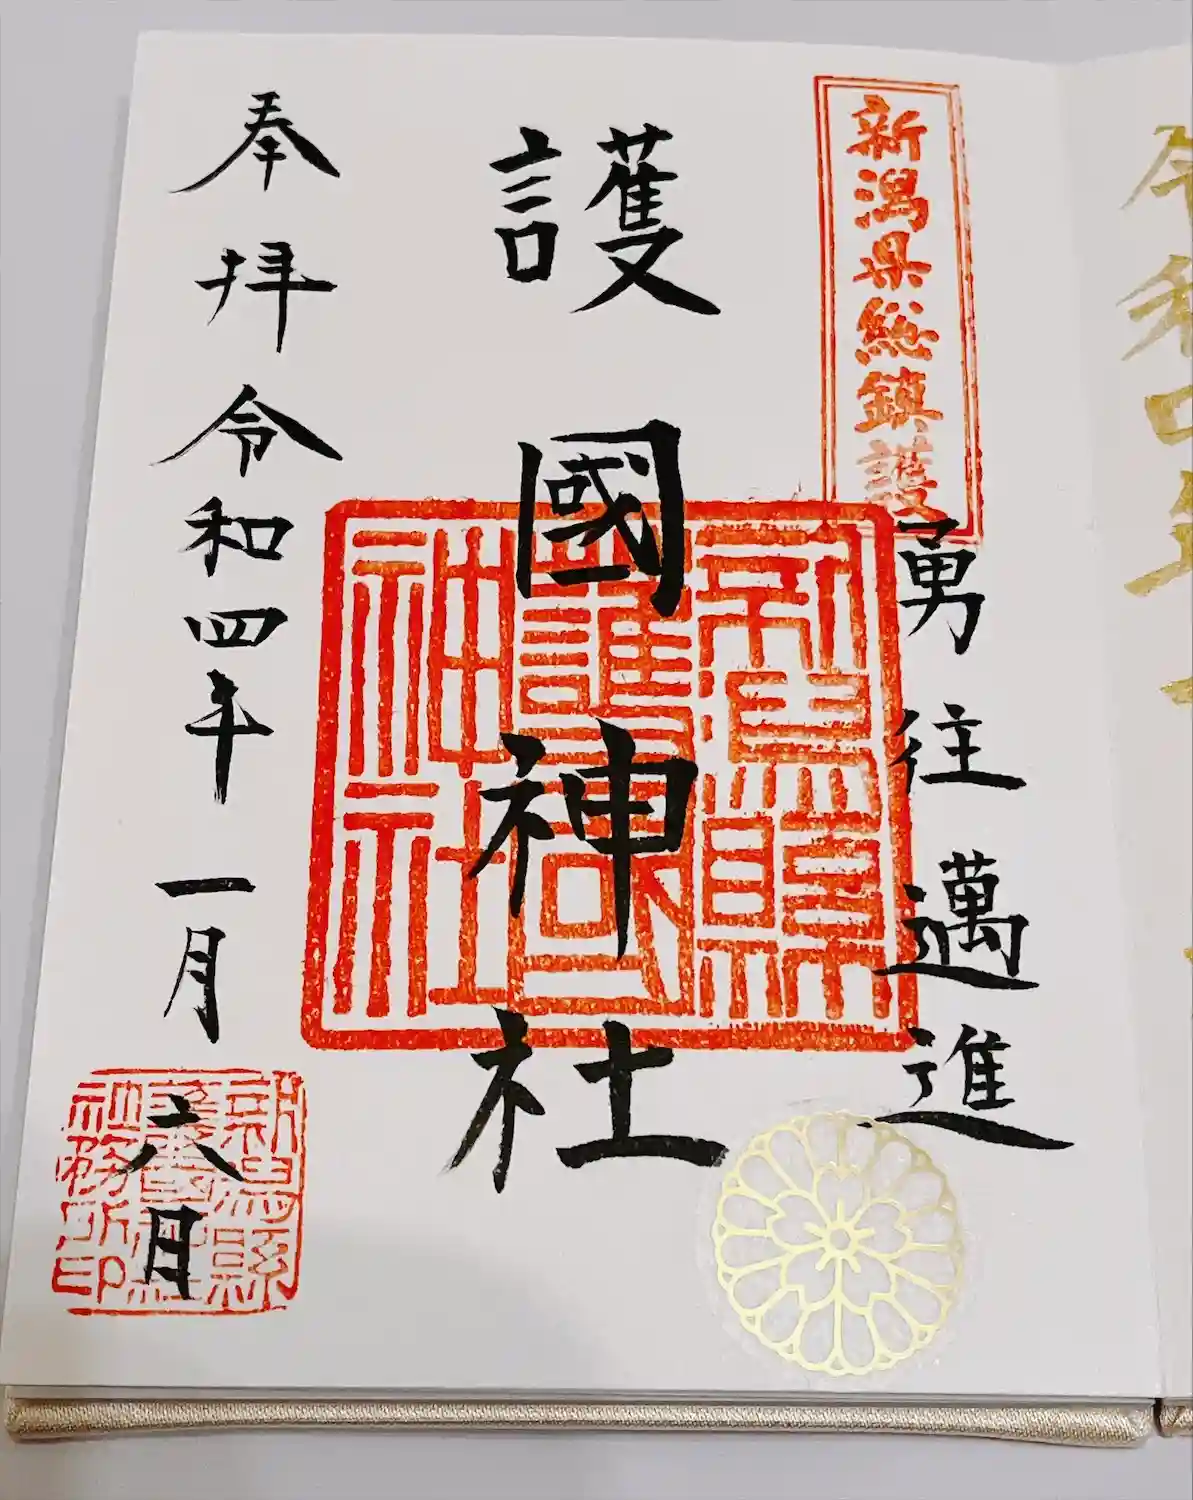 新潟県総鎮護
勇往邁進
護國神社
新潟縣
護國
神社
奉拝
令和四年一月六日
新潟縣
護國神社
社務所印